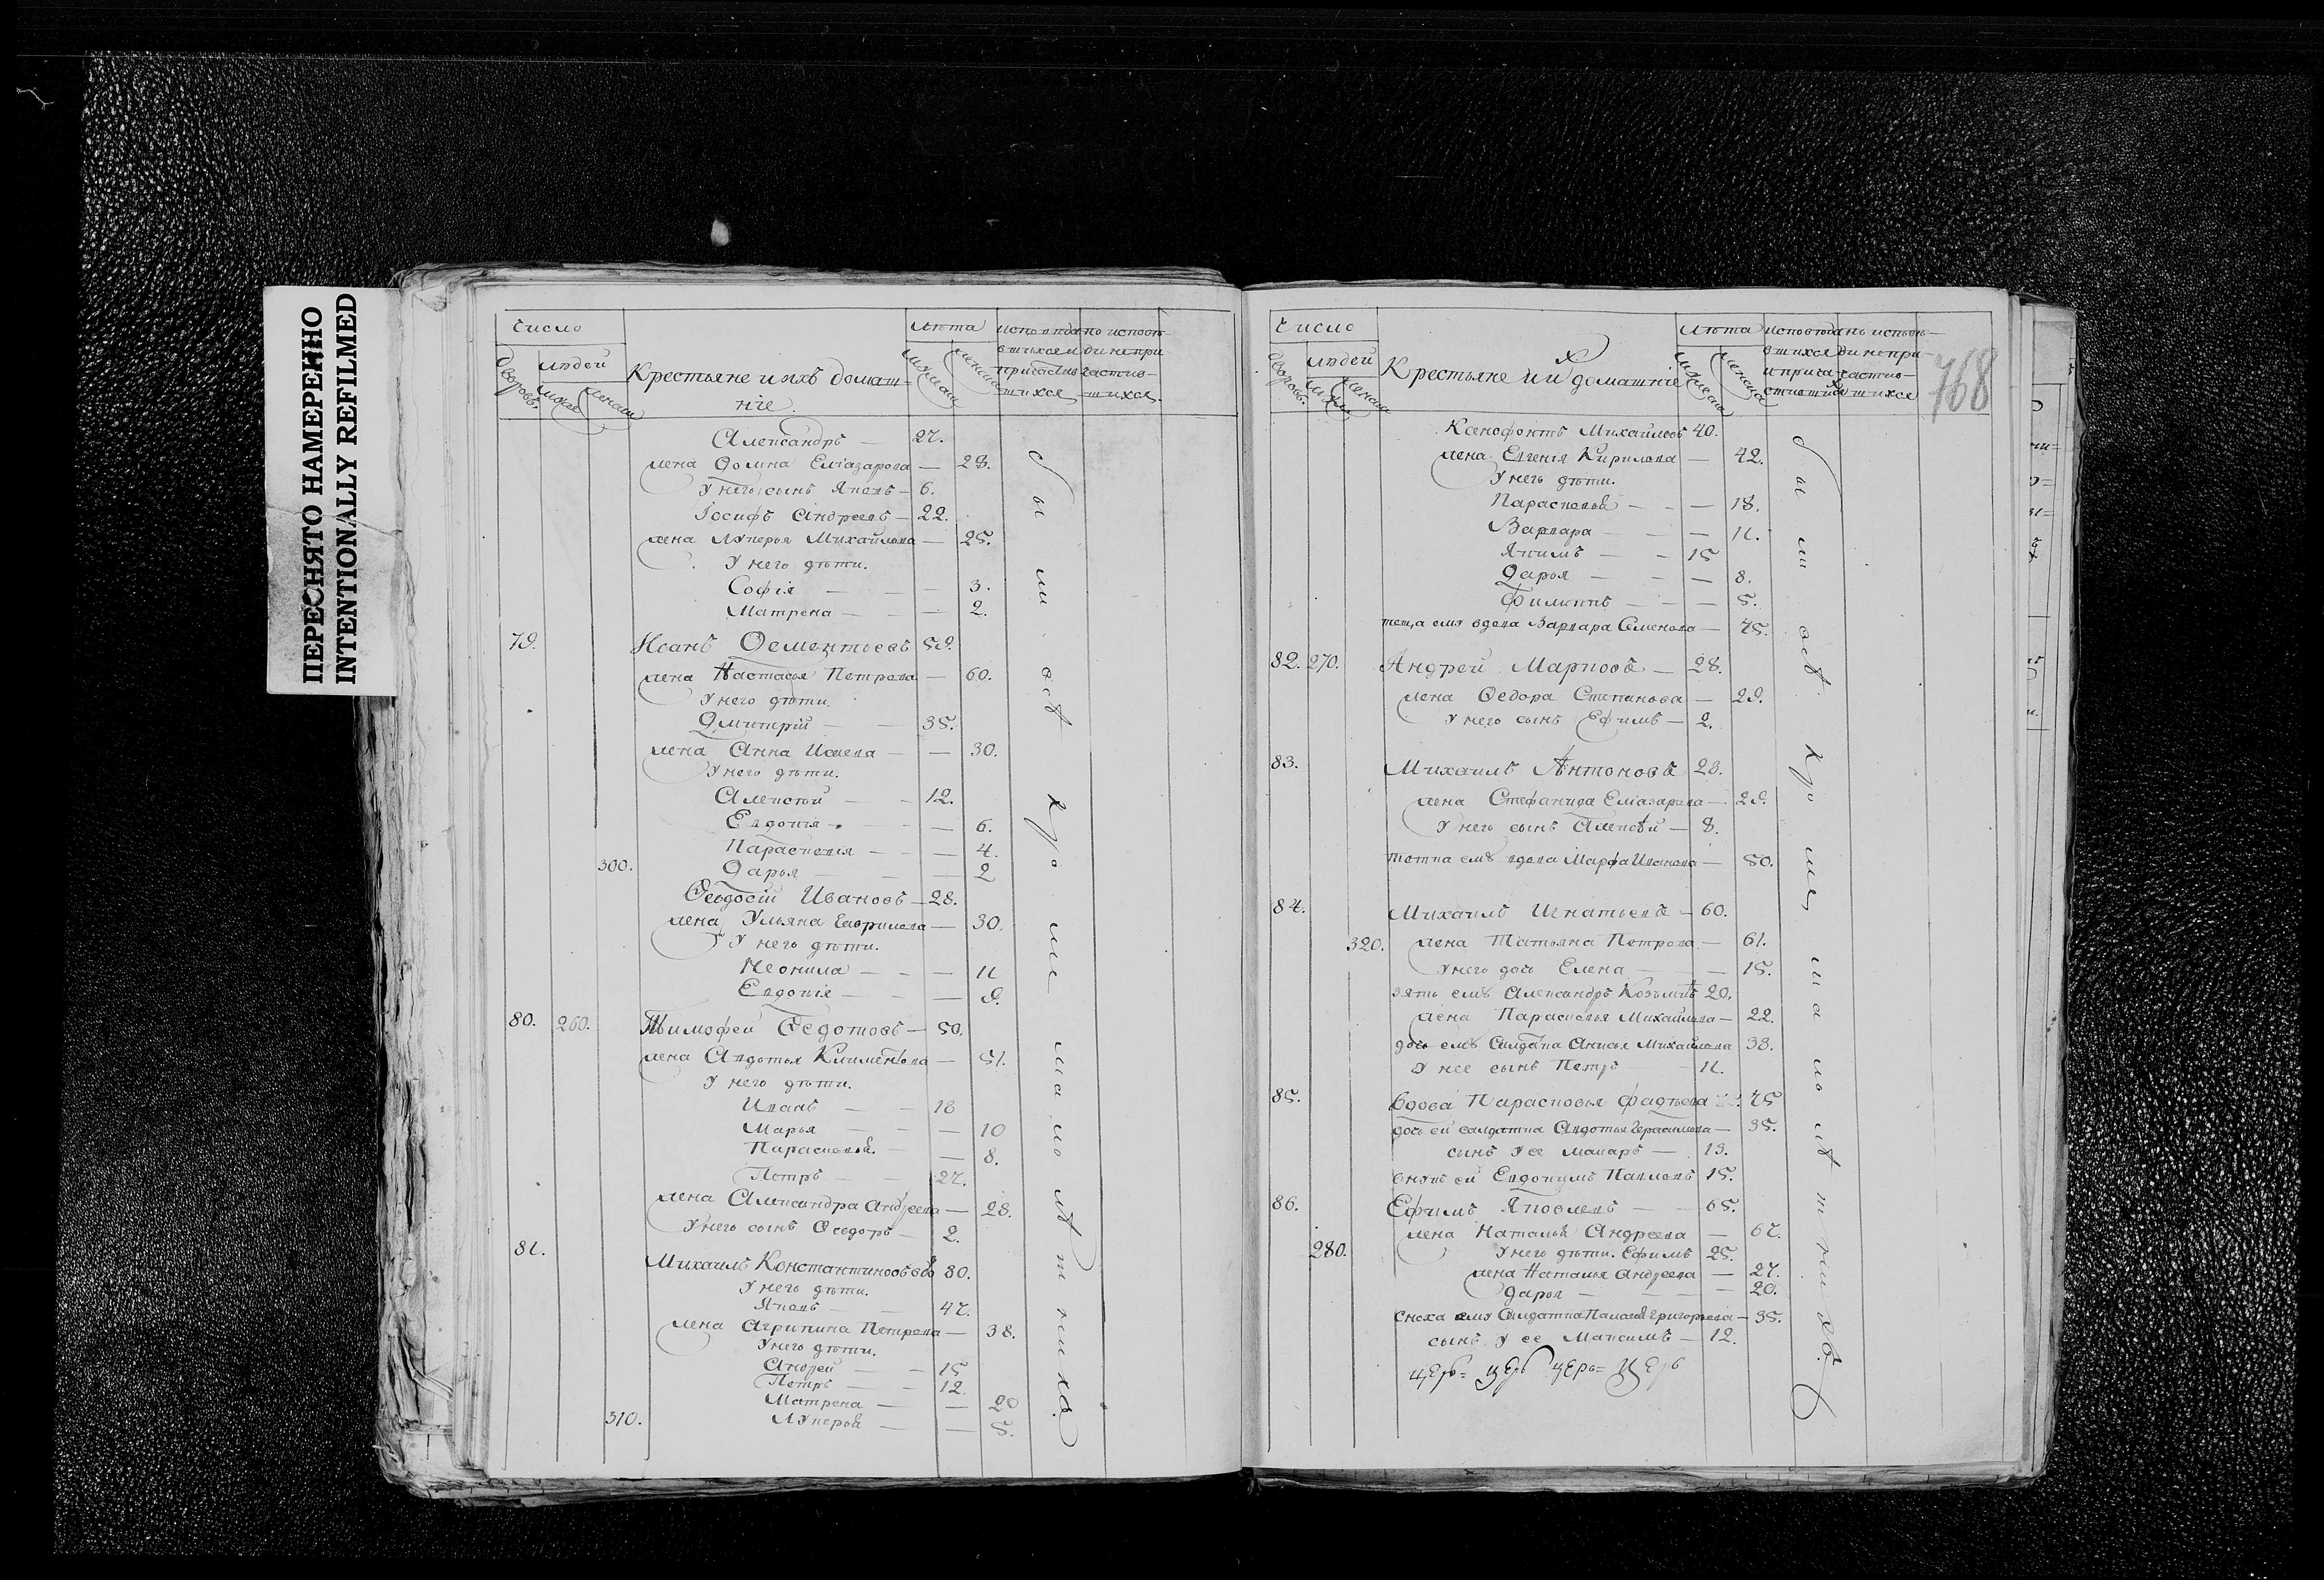 ПЕРЕСНЯТО НАМЕРЕННО
INTENTIONALLY REFILMED
число
лѣта
исповѣда
но исповѣ-
дворовъ.
людей
мужес
женска
Крестьяне и ихъ домаш-
ніе.
мужска
женска
вшихся и
ди непри
причастив
частив-
шихся
шихся.
Александръ — 27.
жена Домна Еліазарова — 28.
У него сынъ Яковъ — 6.
Іосифъ Андреевъ — 22.
жена Лукерья Михайлова — 25.
У него дѣти.
Софія — 3.
Матрена — 2.
79. Иванъ Дементьевъ 59.
жена Настасья Петрова — 60.
У него дѣти.
Дмитрій — 35.
жена Анна Исаева — 30.
У него дѣти.
Алексѣй — 12.
Евдокія — 6.
Параскевія — 4.
300. Дарья — 2
Ѳеодосій Ивановъ — 28.
жена Ульяна Гаврилова — 30.
У него дѣти.
Неонила — 11
Евдокія — 9.
80. 260. Тимофей Ѳедотовъ — 50.
жена Авдотья Климентова — 51.
У него дѣти.
Иванъ — 18
Марья — 10
Параскевья. — 8.
Петръ — 27.
жена Александра Андреева — 28.
У него сынъ Ѳеодоръ — 2.
81. Михаилъ Константиновъ вдв 80.
У него дѣти.
Яковъ — 47.
жена Агрипина Петрова — 38.
У него дѣти.
Андрей — 15
Петръ — 12.
Матрена — 20
310. Лукерья — 5.
были всѣ кроме малолѣтнихъ.
число
лѣта
исповѣда
но исповѣ-
дворовъ.
людей
мужс
женска
Крестьяне и ихъ домашніе
мужеска
женска
вшихся
ди непри-
и прича-
частив-
стившихся
шихся
768
Ксенофонтъ Михайловъ 40.
жена Евгенія Кирилова — 42.
У него дѣти.
Параскевья — 18.
Варвара — 11.
Якимъ — 15
Дарья — 8.
Филиппъ — 5.
теща ему вдова Варвара Семенова — 75.
82. 270. Андрей Марковъ — 28.
жена Ѳедора Степанова — 29.
У него сынъ Ефимъ — 2.
83. Михаилъ Антоновъ 28.
жена Стефанида Еліазарова — 29.
У него сынъ Алексѣй — 8.
тетка емѵ вдова Марфа Иванова — 50.
84. Михаилъ Игнатьевъ — 60.
320. жена Татьяна Петрова — 61.
У него дочь Елена — 15.
зять емѵ Александръ Козьминъ 20.
жена Параскевья Михайлова — 22.
дочь емѵ Салдатка Анисья Михайлова 38.
У нее сынъ Петръ — 11.
85. Вдова Парасковья Фадѣева 75
дочь ей салдатка Авдотья Герасимова — 35.
сынъ у ее Макаръ — 13.
внукъ ей Евдокимъ Павловъ 15.
86. Ефимъ Яковлевъ — 65.
жена Наталья Андреева — 67.
280. У него дѣти. Ефимъ 25.
жена Наталья Андреева — 27.
Дарья — 20.
сноха ему Салдатка Палагея Григорьева — 35.
сынъ у ее Максимъ — 12.
церь= церь церь= церь
были всѣ кроме малолѣтнихъ.